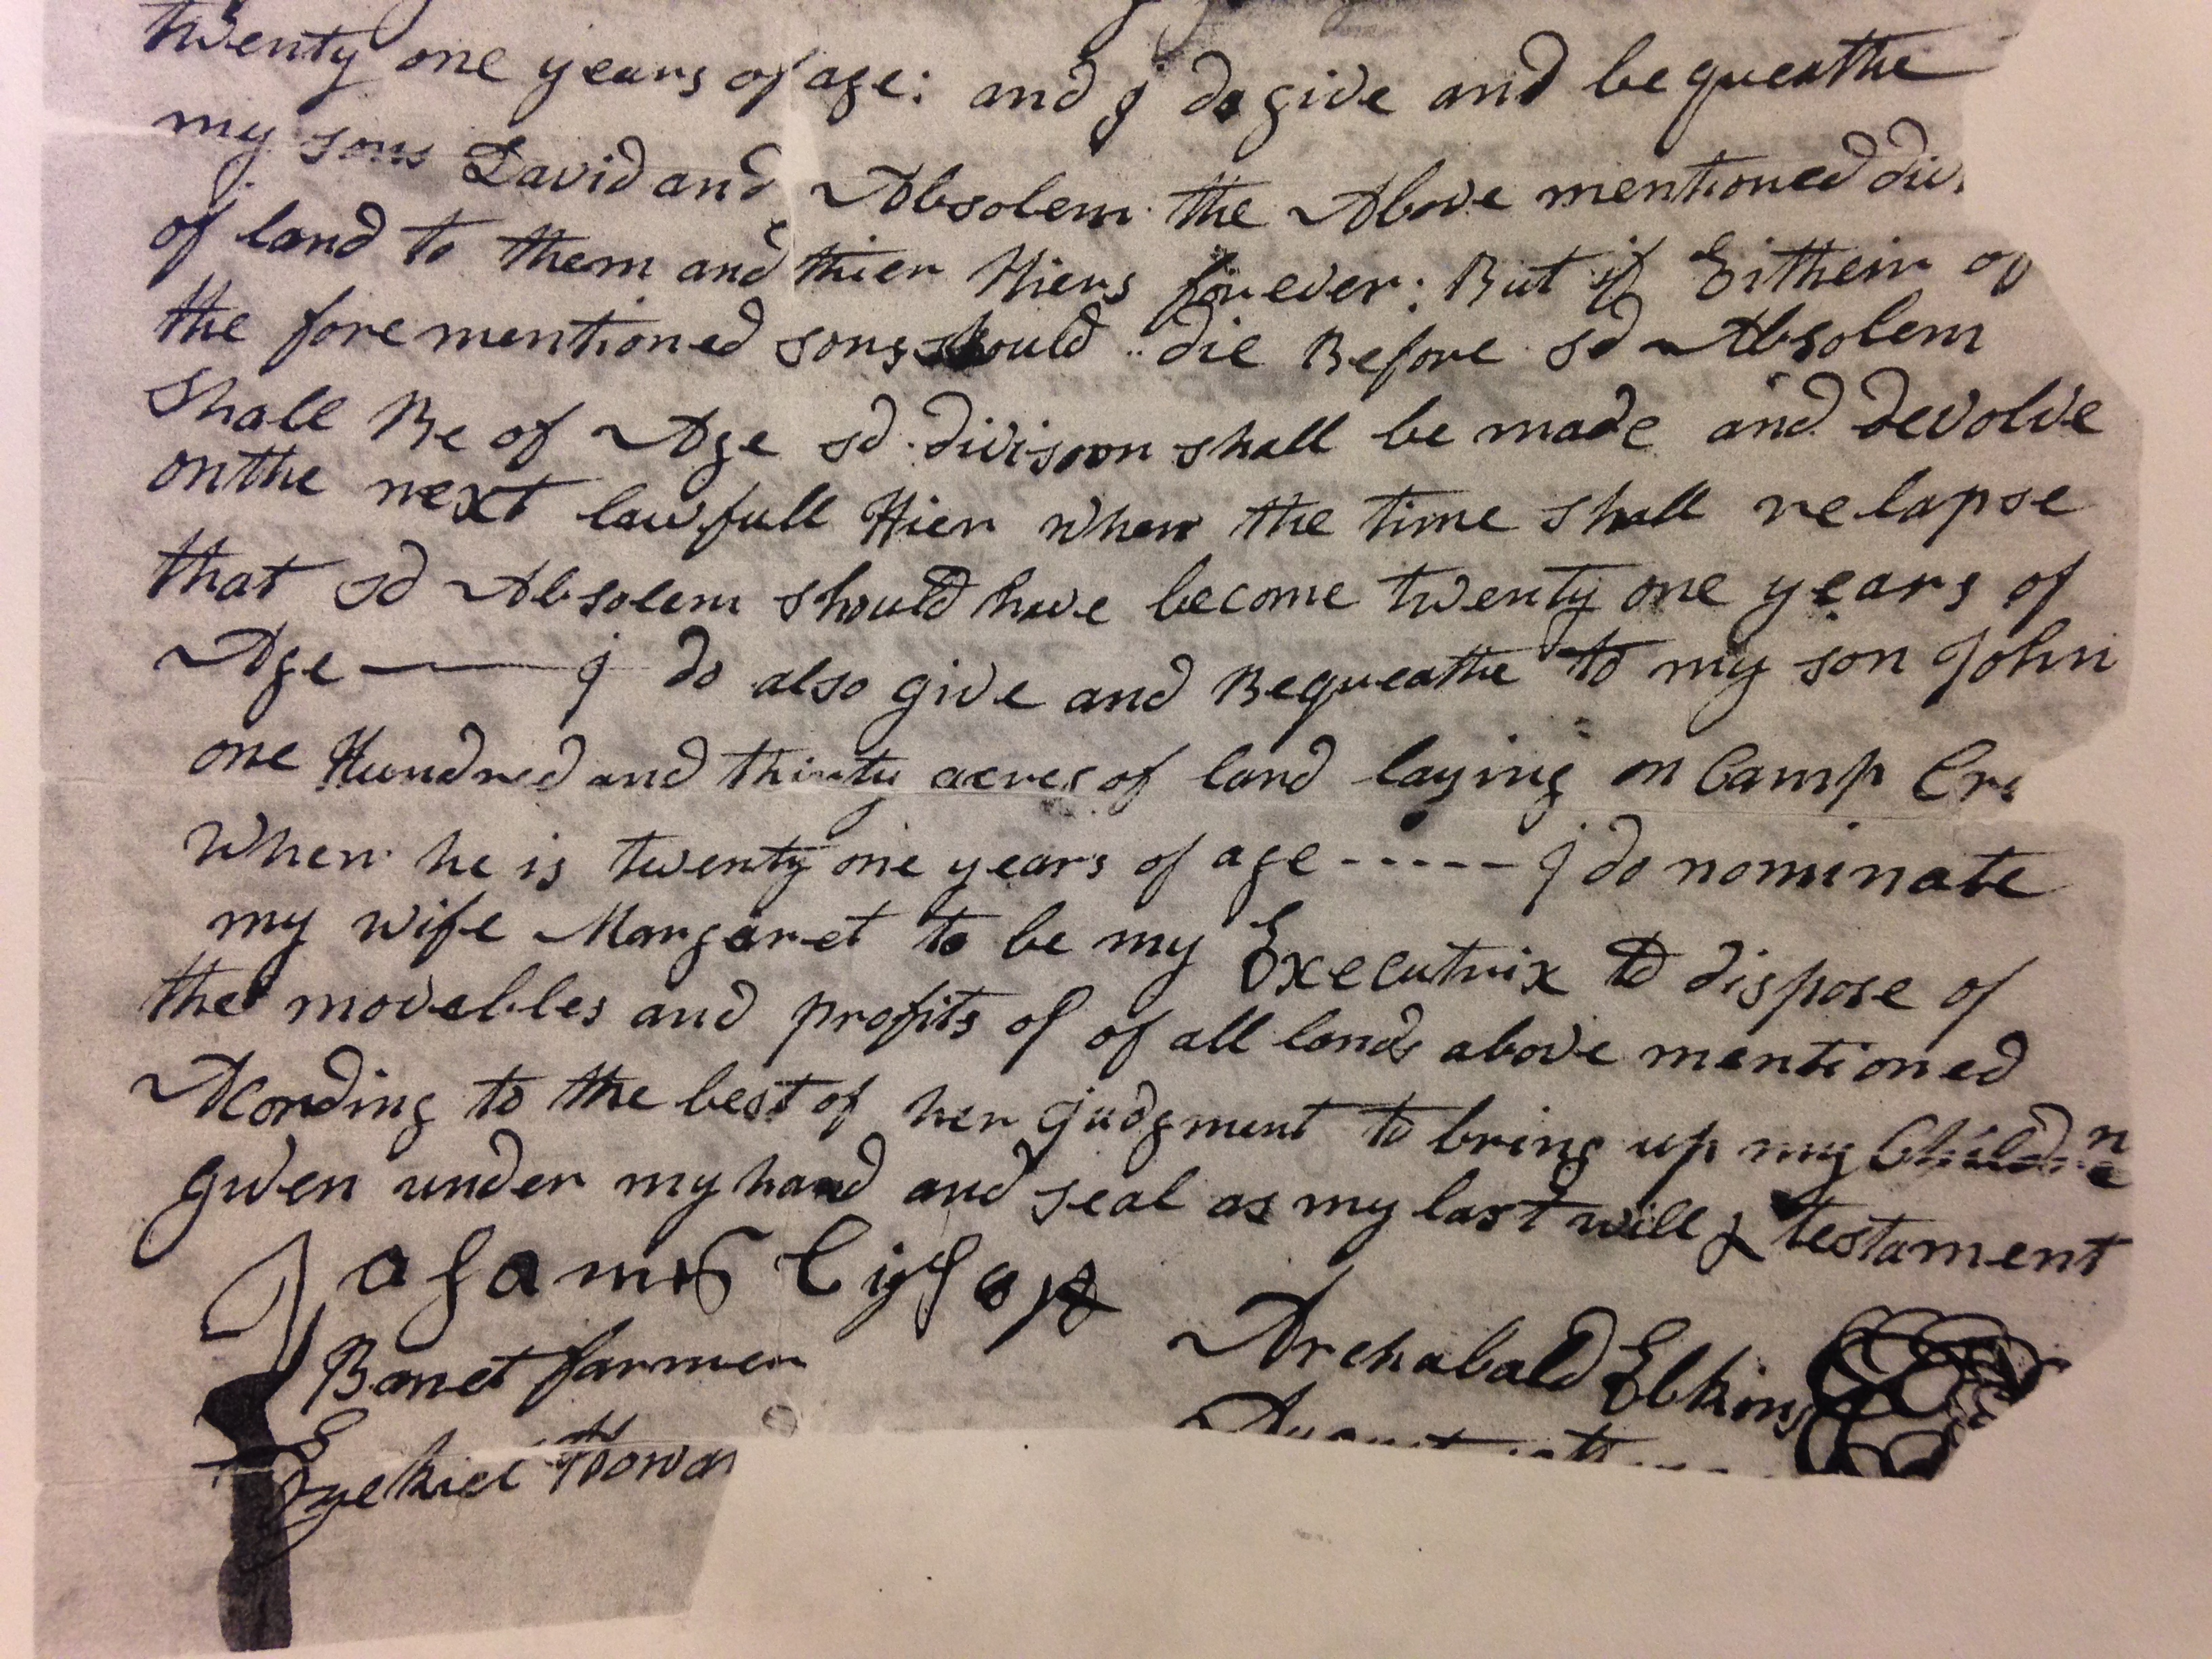 twenty one years of age: and J do give and bequeathe
my sons David and Absolem the Above mentioned
of land to them and thier Hiers forever: But if Eitheir of
the forementioned sons should die Before sd Absolem
Shall Be of Age sd divisoon shall be made and devolve
onthe next lawfull Hier when the time shall relapse
that sd Absolem should have become twenty one years of
Age — J do also give and Bequeathe to my son John
one Hundred and thirty acres of land laying on Camp
When he is twenty one years of age ----- J do nominate
my wife Margaret to be my Executrix to dispose of
the movebles and profits of of all lands above mentioned
Acording to the best of her judgment to bring up my Children
given under my hand and seal as my last will & testament
Archabald Elkins
Banet farmer
Ezekiel